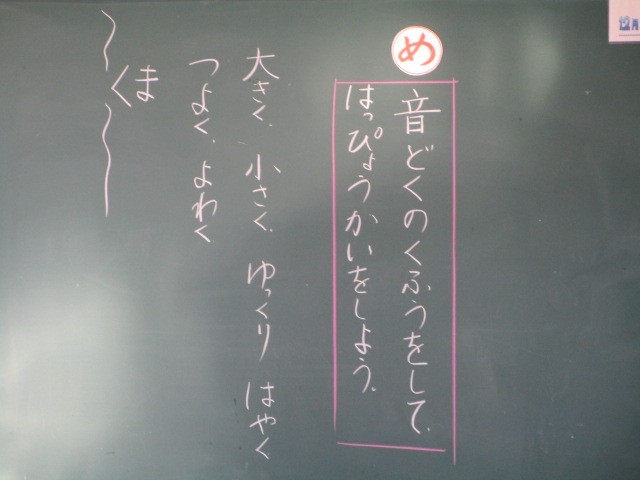 め
音どくのくふうをして、
はっぴょうかいをしよう。
大きく、小さく、ゆっくり はやく
つよく、よわく
ま
く